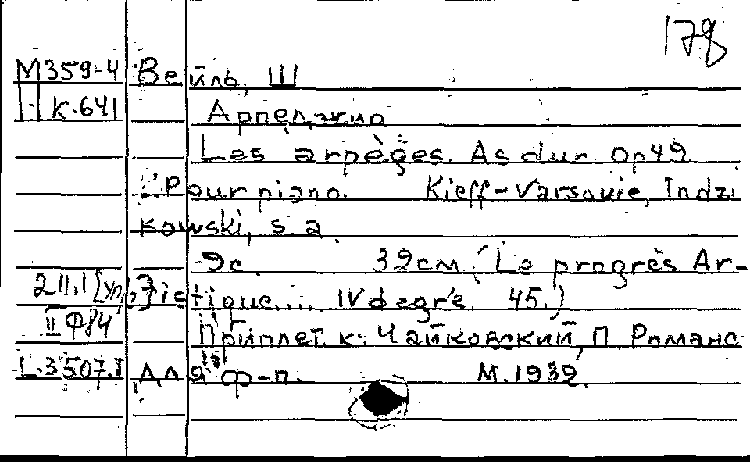 178
М359-4 Вейль, Ш
К.641 Арпеджио
Les arpèges. As dur op49
Pour piano. Kieff-Varsovie, Indzi
kowski, s. a.
9с. 32см. (Le progrès Ar-
2.II.1 tistique... IV degré. 45.)
II Ф84 Приплет. к: Чайковский, П Романс
L.3507.I для ф-п. М.1939.